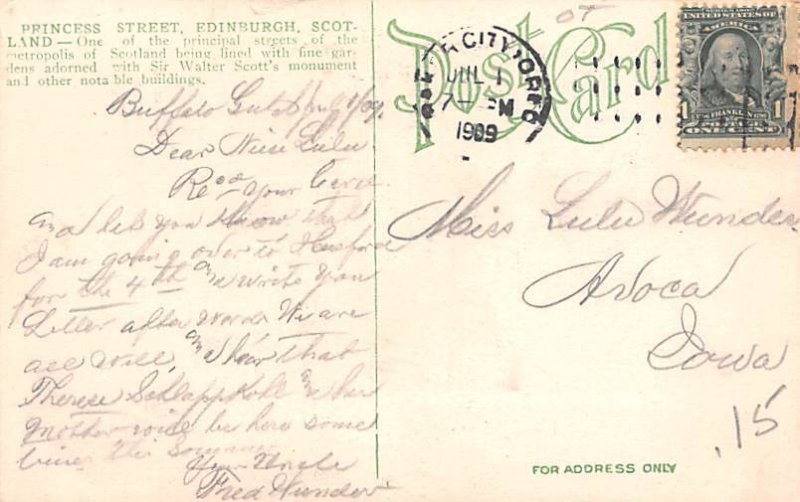 PRINCESS STREET, EDINBURGH, SCOT-
LAND — One of the principal streets of the
metropolis of Scotland being lined with fine gar-
dens adorned with Sir Walter Scott's monument
and other notable buildings.
Post Card
CITY, OREG
JUL 1
7 PM
1909
SERIES 1902
UNITED STATES OF
AMERICA
1 FRANKLIN 1
ONE CENT
Buffalo 1/09.
Dear Niece Lulu
Recd your
and let you know that
I am going over to
for the 4th and write you
Letter afterwords We are
all well, and hear that
Therese Schlappkohl and her
Mother will be here some
time this Sommer
Your Uncle
Fred Wunder
Miss Lulu Wunder
Avoca
Iowa
.15
FOR ADDRESS ONLY